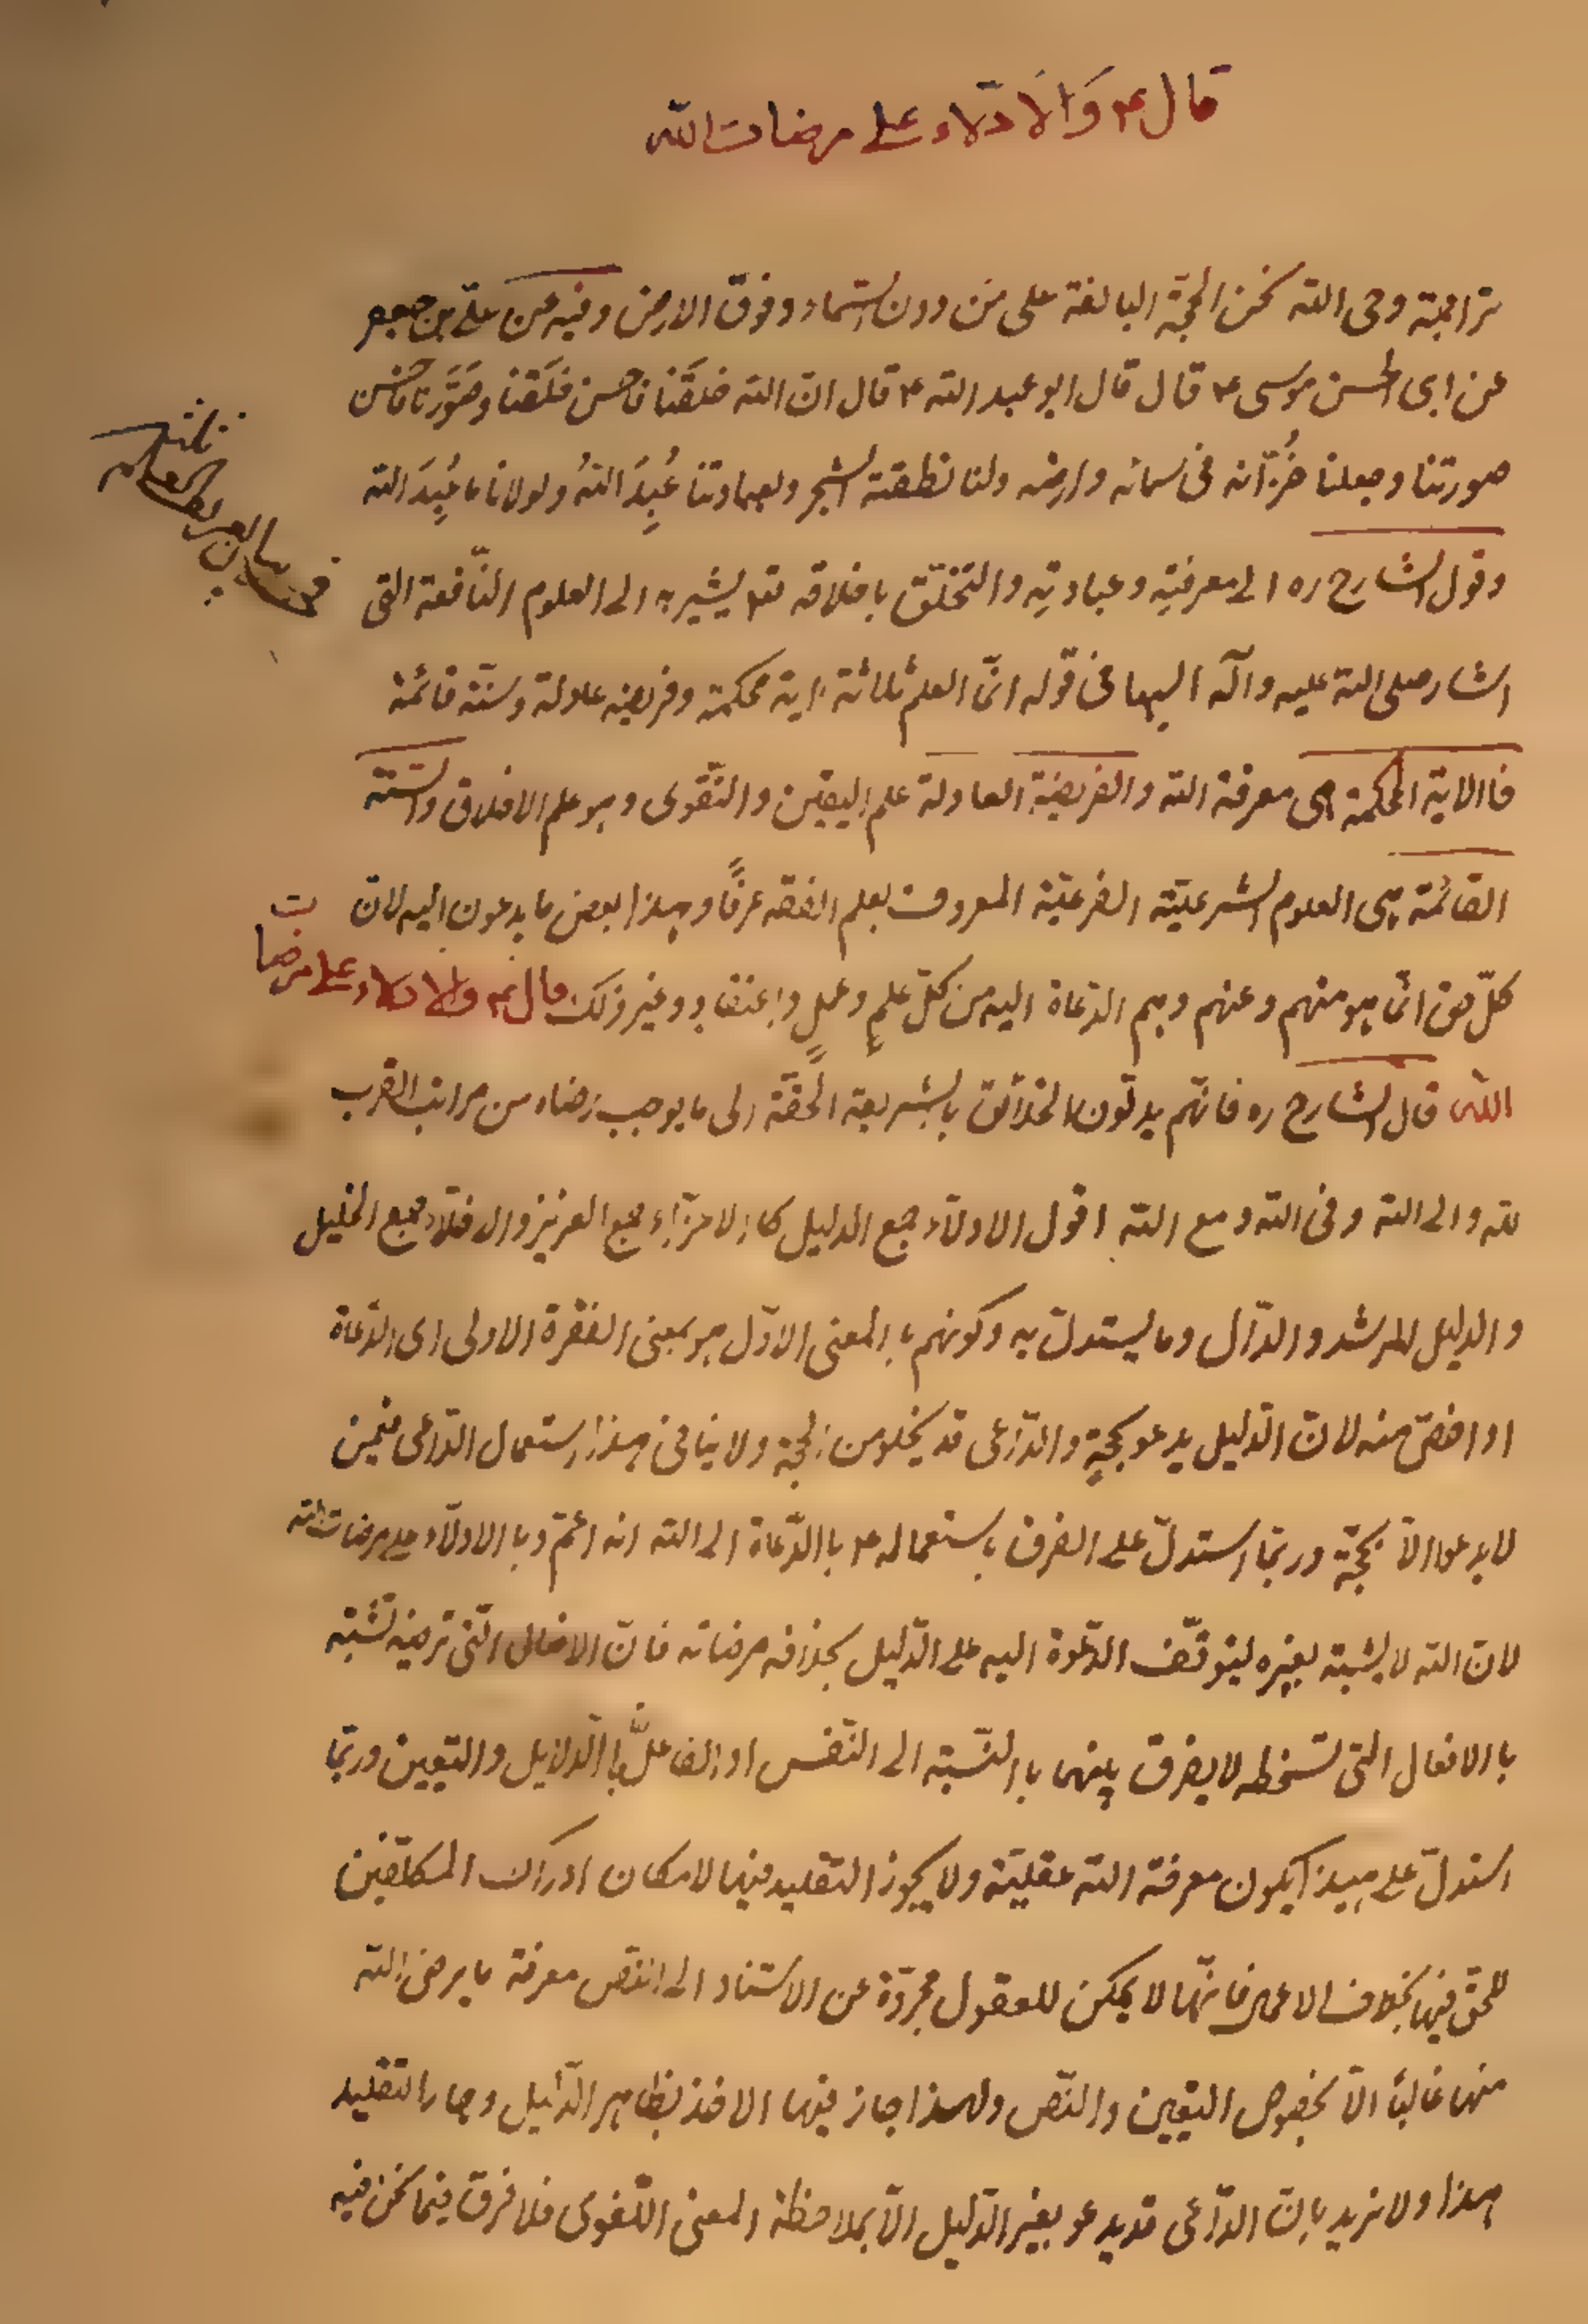 قال ع وَالاَدلّاء على مرضات الله
تراجمة وحى الله نحن الحجّة البالغة على من دون السّماء وفوق الارض وفيه عن علىّ بن جعفر
عن ابى الحسن موسى ع قال قال ابو عبد الله ع قال انّ الله خلقَنا فاحسن خلقَنا وصَوَّرَنا فاحسن
صورتنا وجعلنا خُزّانه فى سمائه وارضه ولنا نطقت الشجر وبعبادتنا عُبِدَ اللهُ ولولانا ما عُبِدَ الله
وقول الشارح ره الى معرفتِه وعبادتِه والتخلّق باخلاقه تع يشير به الى العلوم النّافعة التى
اشار صلى الله عليه وآله اليها فى قوله انّما العلم ثلاثة اية محكمة وفريضه عادلة وسنّة قائمة
فاالاية المحكمة هى معرفة الله والفريضة العادلة علم اليقين والتّقوى وهو علم الاخلاق والسّنّة
القائمة هى العلوم الشرعيّة الفرعيّة المعروف بعلم الفقه عرفًا وهذا بعض ما يدعون اليه لانّ
كلّ حق انّما هو منهم وعنهم وهم الدّعاة اليه من كلّ علمٍ وعملٍ واعتقادٍ وغير ذلك قال ع والادلاء على مرضات
الله قال الشارح ره فانّهم يدلّون الخلائق بالشريعة الحقّة الى ما يوجب رضاه من مراتب القرب
لله والى الله وفى الله ومع الله اقول الادلّاء جمع الدليل كا الاعزّاء جمع العزيز والاخلّاء جمع الخليل
والدليل المرشد والدّال وما يستدلّ به وكونهم باالمعنى الاوّل هو بمعنى الفقرة الاولى اى الدّعاة
او اخصّ منه لانّ الدّليل يدعو بحجّةٍ والدّاعى قد يخلو من الحجّة ولا ينافى هذا استعمال الدّاعى فيمن
لا يدعوا الّا بحجّة وربّما استدلّ على الفرق باستعماله ع باالدّعاة الى الله انه اعمّ وباالادلّاء على مرضات الله
لانّ الله لا يشبته بغيره ليتوقّف الدّعوة اليه على الدّليل بخلافه مرضاته فانّ الافعال الّتى ترضيه تشبته
باالافعال التى تسخطه لا يفرق بينهما باالنّسبة الى النّفس او الفاعل الّا باالدّلايل والتعيين وربّما
استدلّ على هذا بكون معرفة الله عقليّة ولا يجوز التقليد فيها لامكان ادراك المكلّفين
للحقّ فيها بخلاف الاعمال فانّها لا يمكن للعقول مجرّدة عن الاستناد الى النّصّ معرفة ما يرضى الله
منها غالبًا الّا بخصوص التعيين والنّص ولهذا جاز فيها الاخذ بظاهر الدّليل وجاز التقليد
هذا ولا نريد بانّ الدّاعى قد يدعو بغير الدّليل الّا بملاحظة المعنى اللّغوى فلا فرق فيما نحن فيه
فى بيان